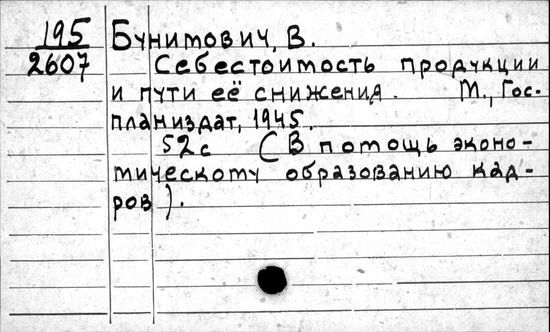 195 Бунимович, В.
2607 Себестоимость продукции
и пути её снижения. М., Гос-
планиздат, 1945.
52с (В помощь эконо-
мическому образованию кад-
ров).